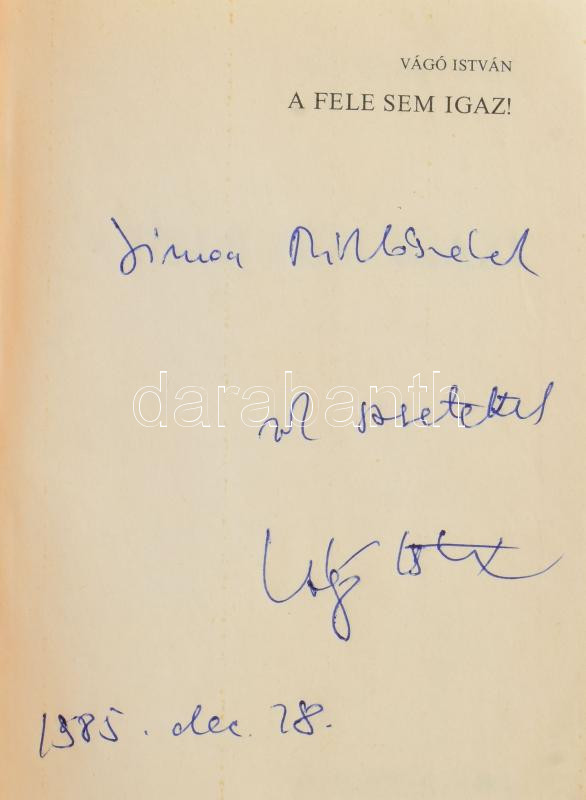 VÁGÓ ISTVÁN
A FELE SEM IGAZ!
Simon Miklósnénak
darabanth
sok szeretettel
Vágó István
1985. dec. 28.